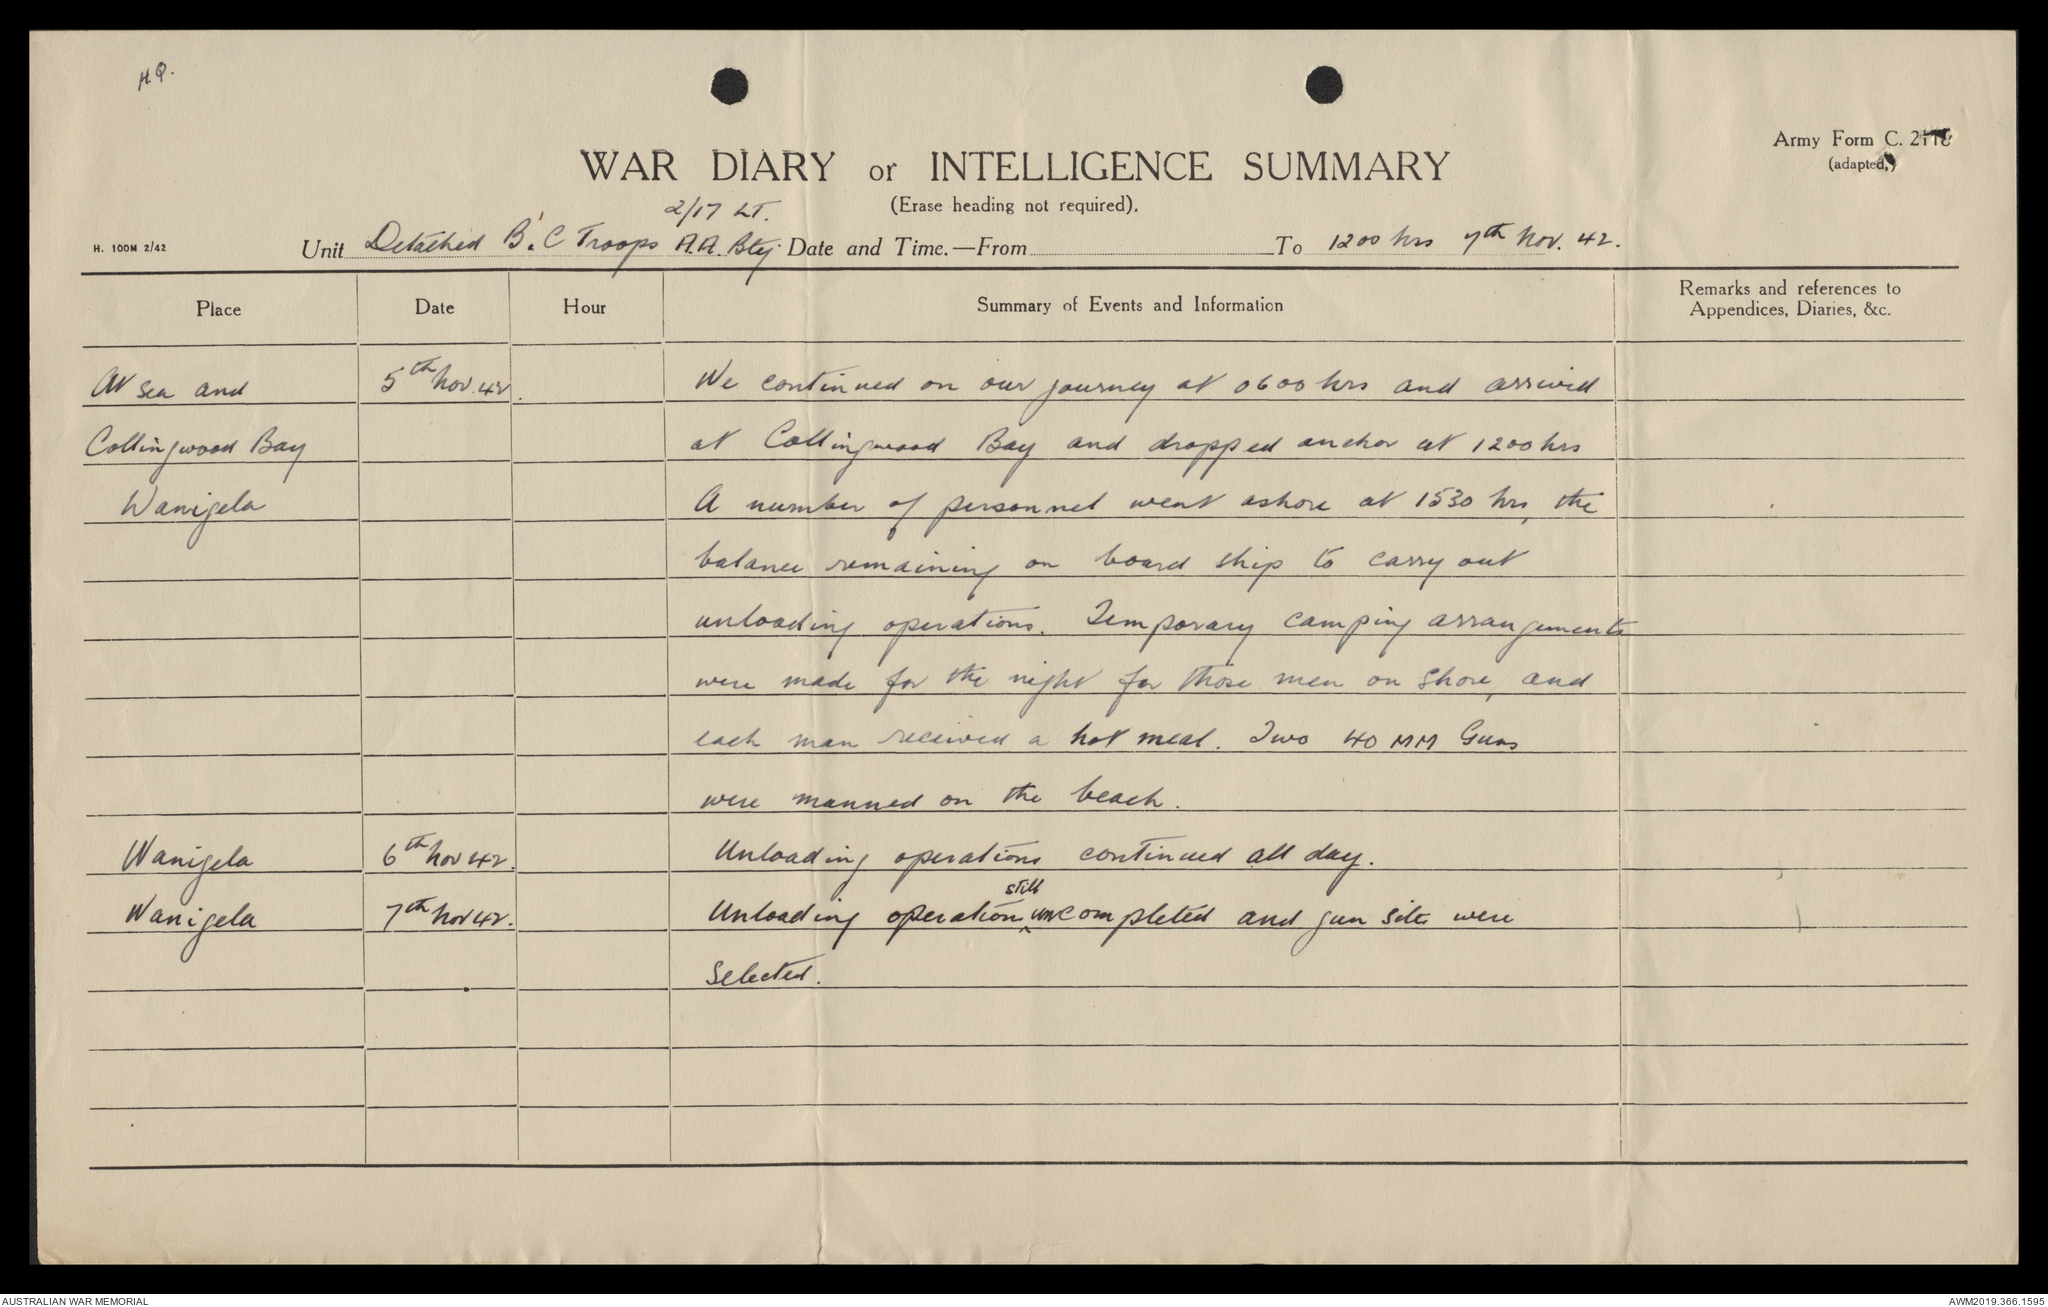 H.Q.
Army Form C. 2118
(adapted.)
WAR DIARY or INTELLIGENCE SUMMARY
(Erase heading not required).
2/17 LT.
H. 100M 2/42
Unit Detached B. C Troops A.A. Bty Date and Time.—From To 1200 hrs 7th Nov. 42.
Place Date Hour Summary of Events and Information Remarks and references to
Appendices, Diaries, &c.
At sea and 5th Nov. 42. We continued on our journey at 0600 hrs and arrived
Collingwood Bay at Collingwood Bay and dropped anchor at 1200 hrs
Wanigela A number of personnel went ashore at 1530 hrs, the
balance remaining on board ship to carry out
unloading operations. Temporary camping arrangements
were made for the night for those men on shore, and
each man received a hot meal. Two 40 MM Guns
were manned on the beach.
Wanigela 6th Nov 42. Unloading operations continued all day.
still
Wanigela 7th Nov 42. Unloading operations uncompleted and gun sites were
selected.
AUSTRALIAN WAR MEMORIAL AWM2019.366.1595